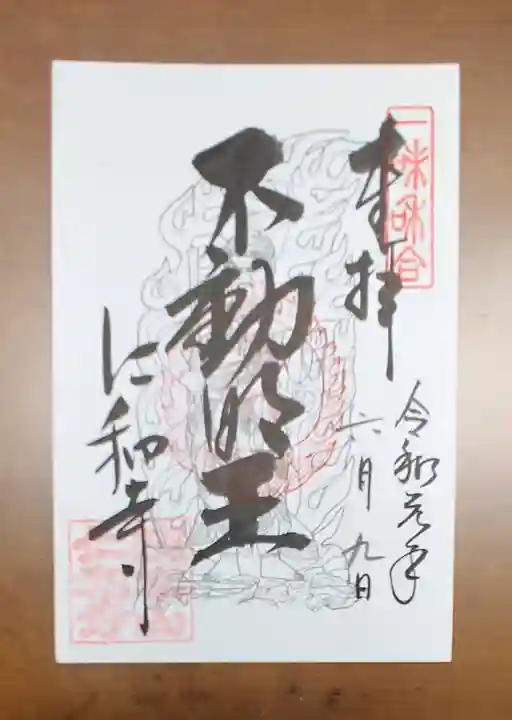 一味和合
奉拝
令和元年
六月九日
不動明王
仁和寺